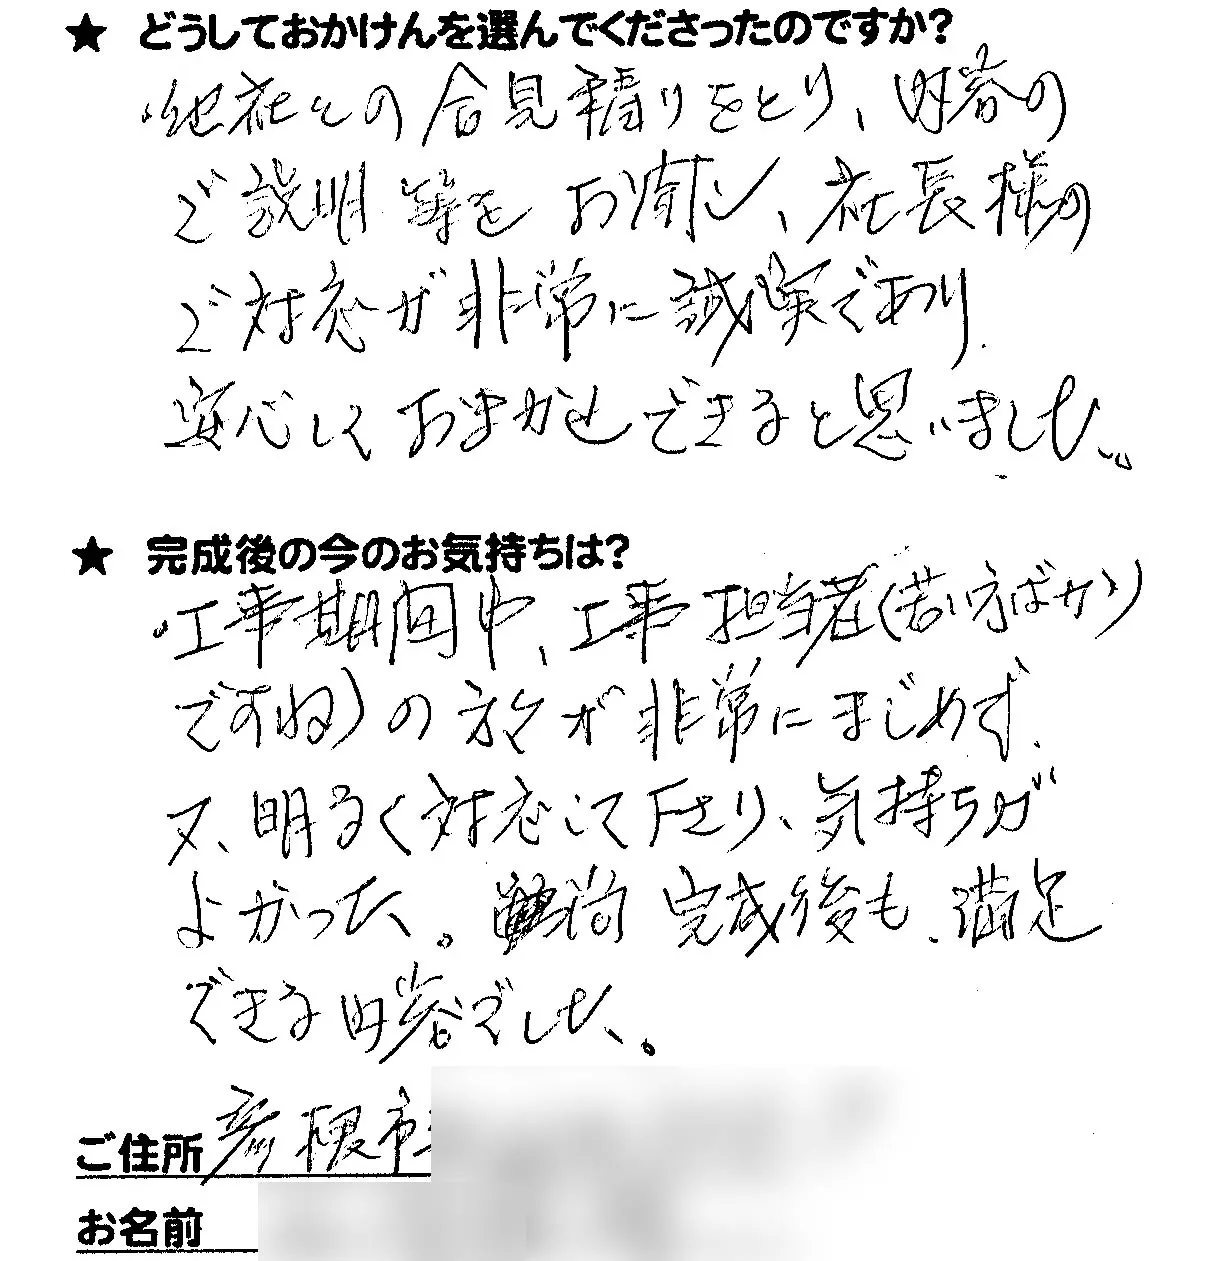 ★ どうしておかけんを選んでくださったのですか?
・他社との合見積りをとり、内容の
ご説明等をお聞し、社長様の
ご対応が非常に誠実であり
安心しておまかせできると思いました。
★ 完成後の今のお気持ちは?
・工事期間中、工事担当者(若い方ばかり
ですね)の方々が非常にまじめで、
又、明るく対応して下さり、気持ちが
よかった。尚 完成後も、満足
できる内容でした。
ご住所 彦根市
お名前